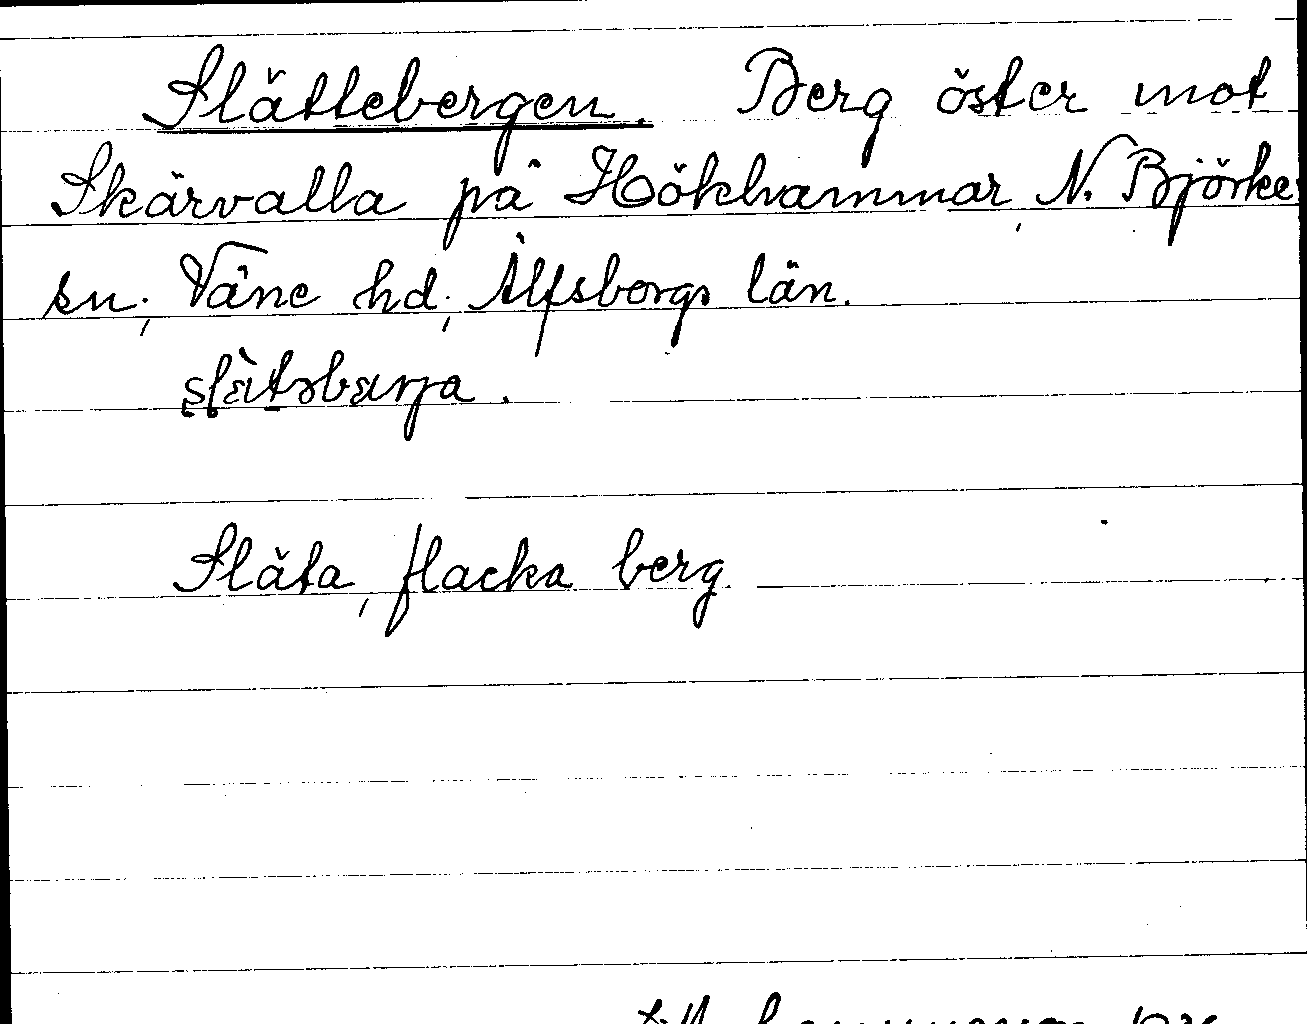 Slättebergen. Berg öster mot
Skärvalla på Hökhammar, N. Björke
sn, Väne hd, Älfsborgs län.
slætəbærja.
Släta, flacka berg